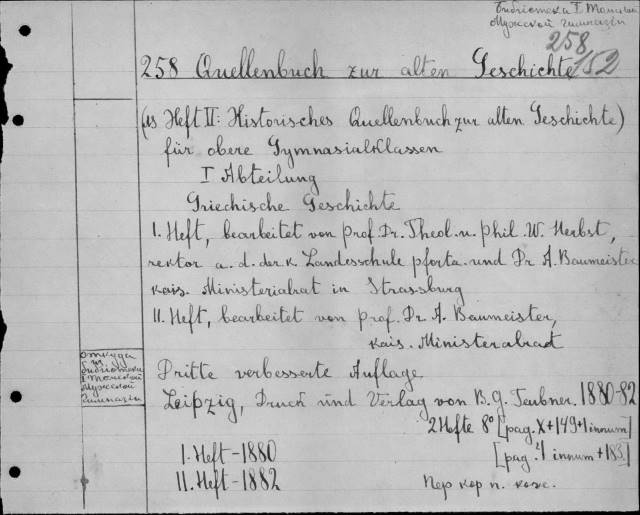 Библиотека I Томской
Мужской гимназiи
258
152
258 Quellenbuch zur alten Geschichte
(us Heft II: Historisches Quellenbuch zur alten Geschichte)
für obere Gymnasialklassen
I Abteilung
Griechische Geschichte
I. Heft, bearbeitet von prof. Dr. Theol. u. phil. W. Herbst,
rektor a. d. der k. Landesschule pforta. und Dr A. Baumeister
kais. Ministerialrat in Strassburg
II. Heft, bearbeitet von prof. Dr. A. Baumeister,
kais. Ministerialrat
откуда
из
библiотеки
I Томской
Мужской
гимназiи
Dritte verbesserte Auflage
Leipzig, Druck und Verlag von B. G. Teubner. 1880-82
2 Hefte 8° [pag. X+149+1 innum]
I. Heft-1880
[pag. 4 innum+183.]
II. Heft-1882
Пер кор п. кож.